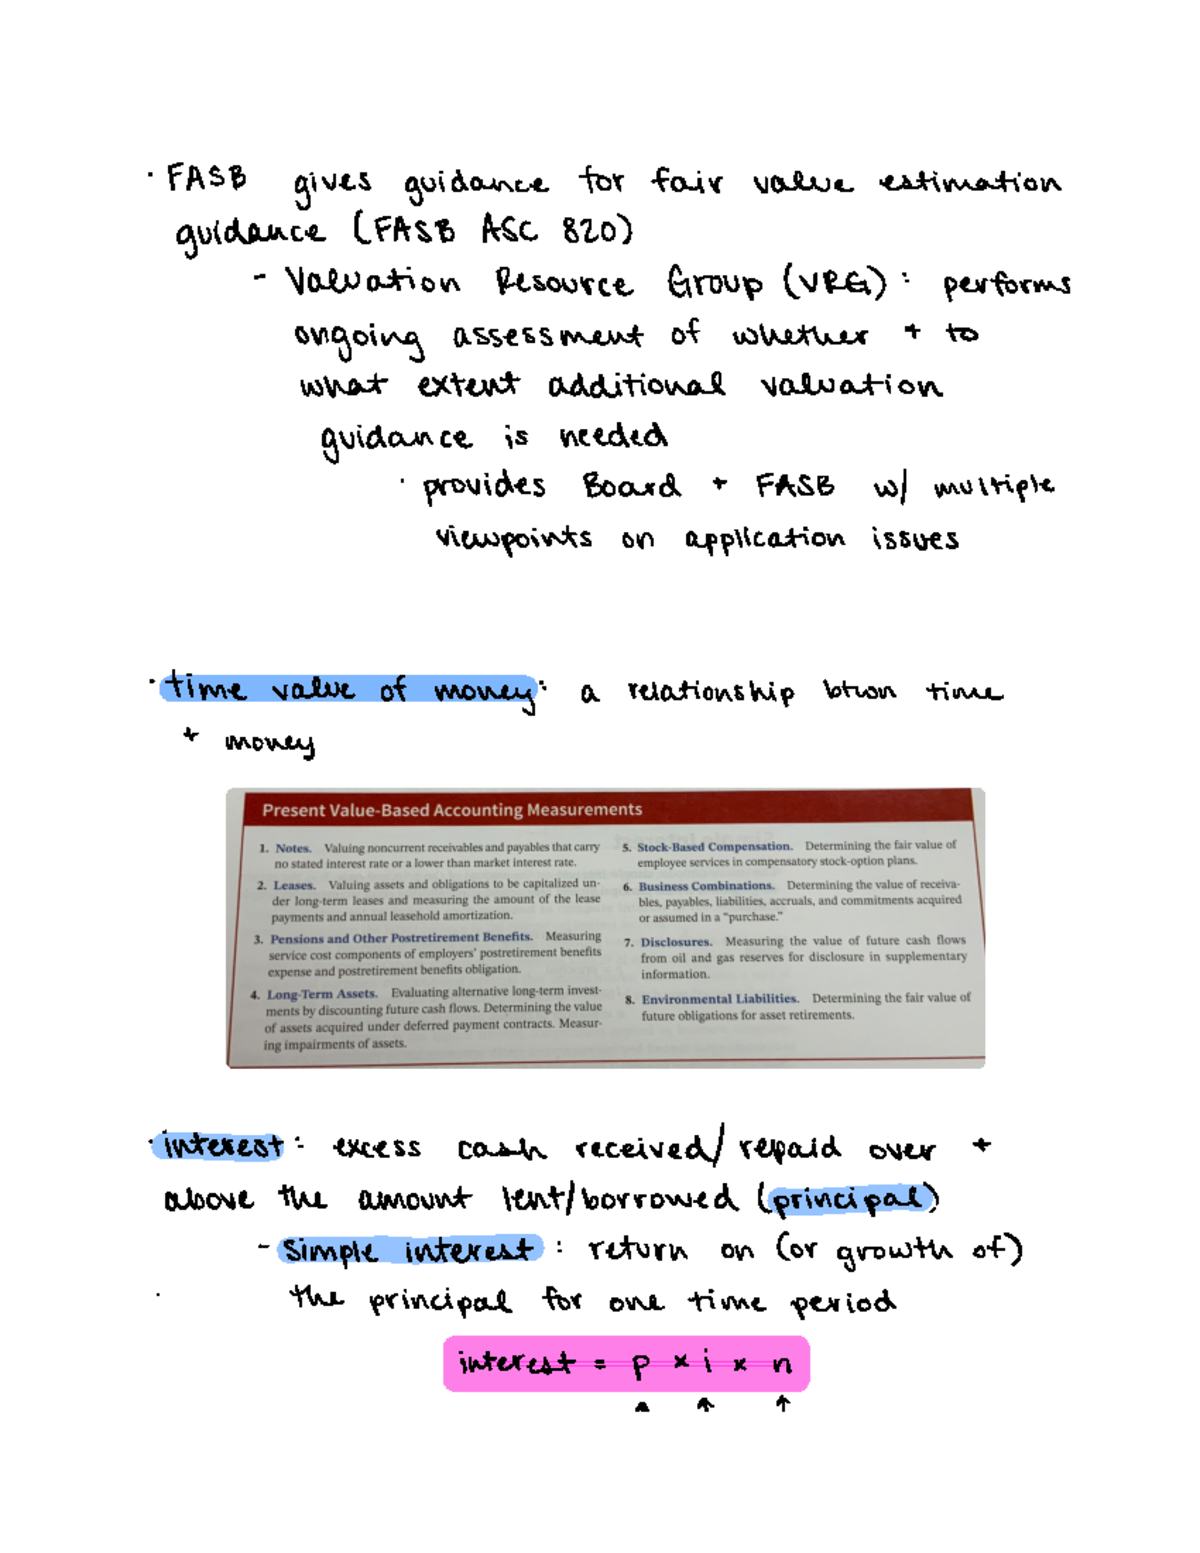 · FASB gives guidance for fair value estimation
guidance (FASB ASC 820)
- Valuation Resource Group (VRG): performs
ongoing assessment of whether + to
what extent additional valuation
guidance is needed
· provides Board + FASB w/ multiple
viewpoints on application issues
· time value of money: a relationship btwn time
+ money
Present Value-Based Accounting Measurements
1. Notes. Valuing noncurrent receivables and payables that carry
no stated interest rate or a lower than market interest rate.
2. Leases. Valuing assets and obligations to be capitalized un-
der long-term leases and measuring the amount of the lease
payments and annual leasehold amortization.
3. Pensions and Other Postretirement Benefits. Measuring
service cost components of employers' postretirement benefits
expense and postretirement benefits obligation.
4. Long-Term Assets. Evaluating alternative long-term invest-
ments by discounting future cash flows. Determining the value
of assets acquired under deferred payment contracts. Measur-
ing impairments of assets.
5. Stock-Based Compensation. Determining the fair value of
employee services in compensatory stock-option plans.
6. Business Combinations. Determining the value of receiva-
bles, payables, liabilities, accruals, and commitments acquired
or assumed in a "purchase."
7. Disclosures. Measuring the value of future cash flows
from oil and gas reserves for disclosure in supplementary
information.
8. Environmental Liabilities. Determining the fair value of
future obligations for asset retirements.
· interest: excess cash received/repaid over +
above the amount lent/borrowed (principal)
- simple interest: return on (or growth of)
the principal for one time period
interest = p × i × n
↑ ↑ ↑